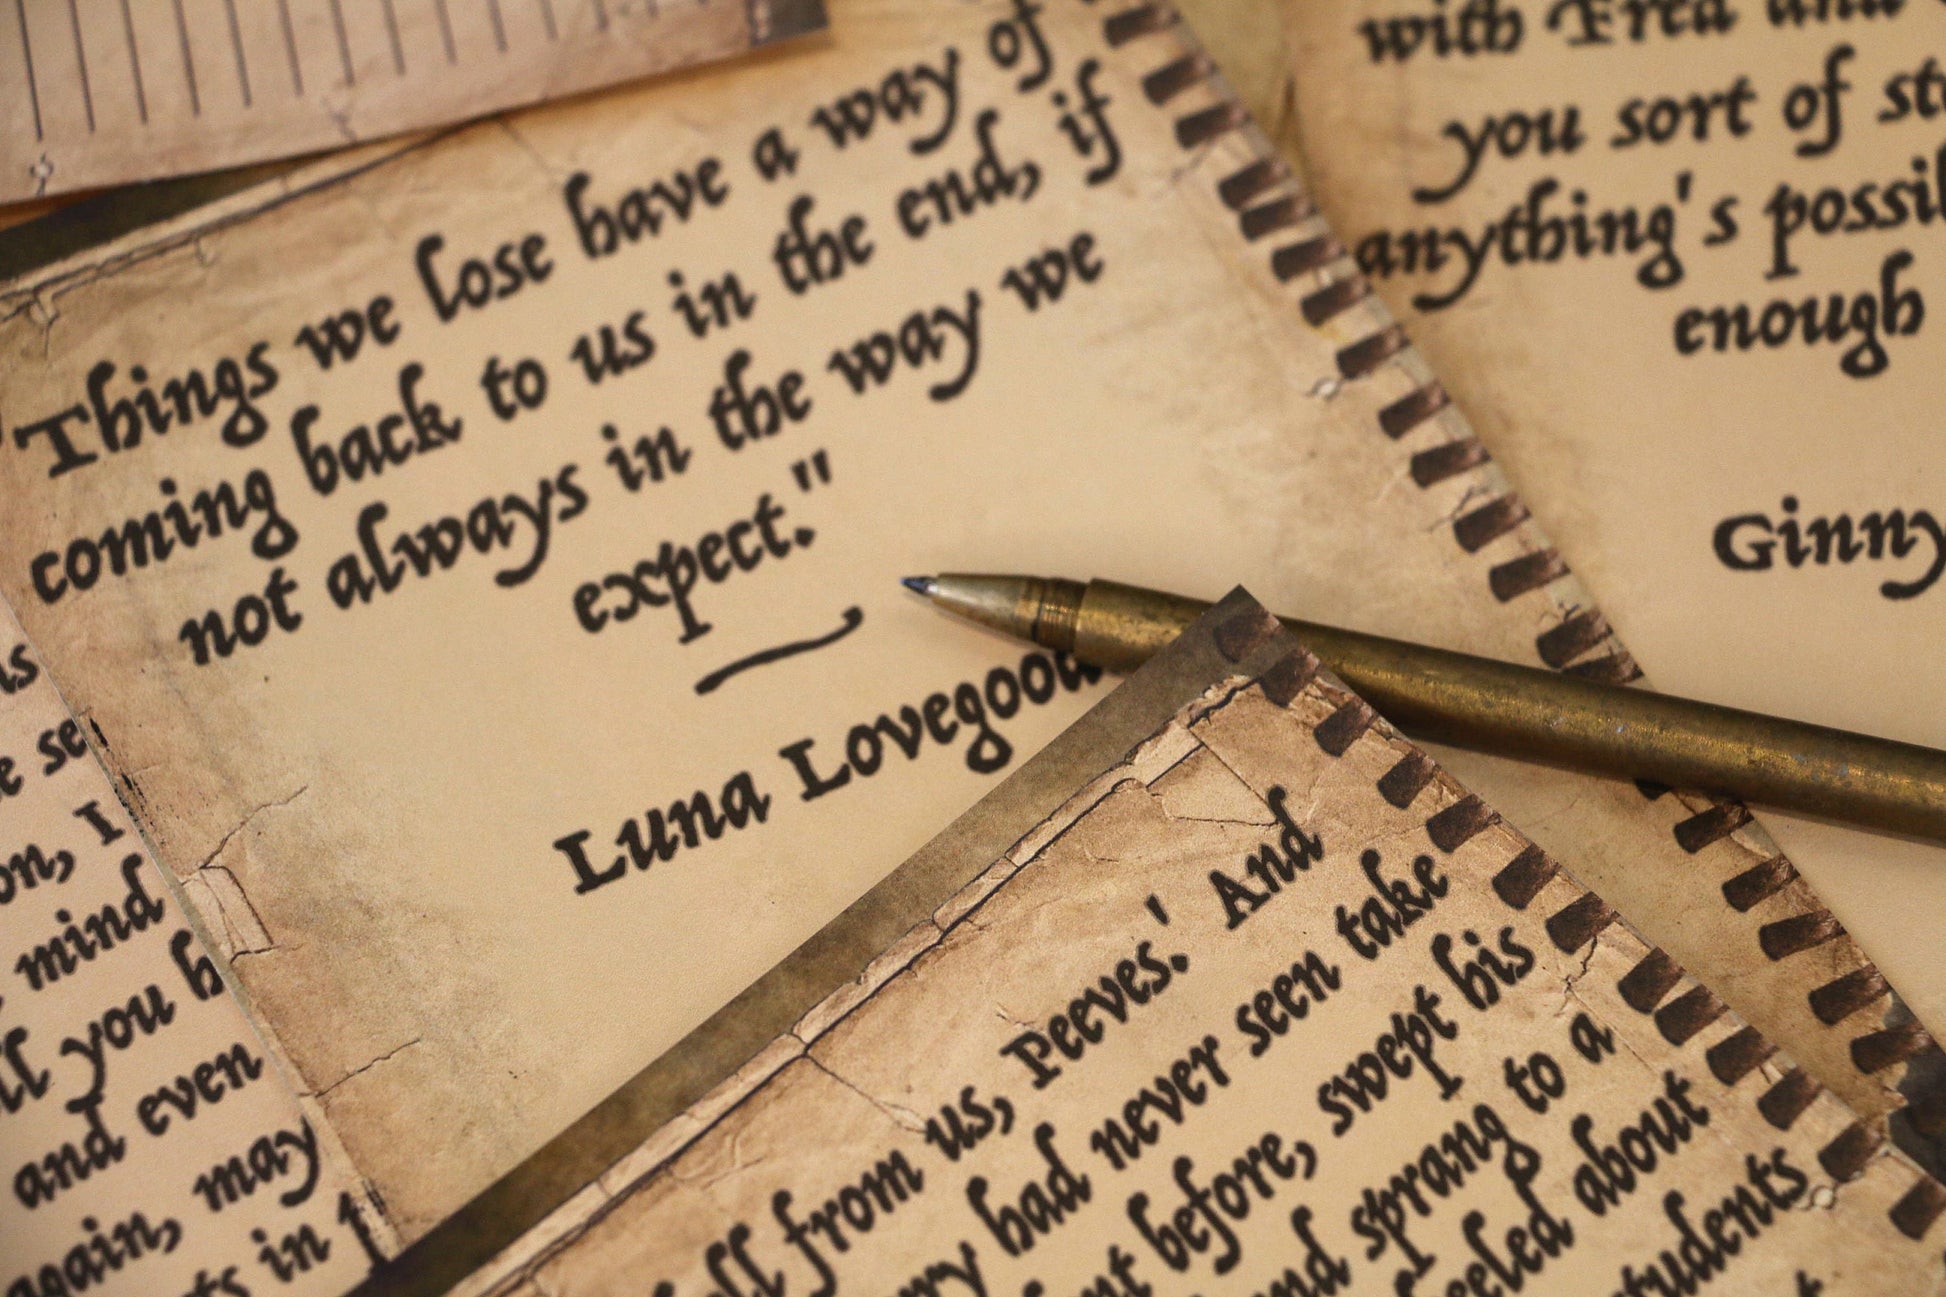 Things we lose have a way of
coming back to us in the end, if
not always in the way we
expect."
Luna Lovegood
with Fred and
you sort of
anything's
enough
Ginny
on, I
mind
you
and even
again, may
in
from us, Peeves.' And
had never seen take
before, swept his
sprang to a
about
students